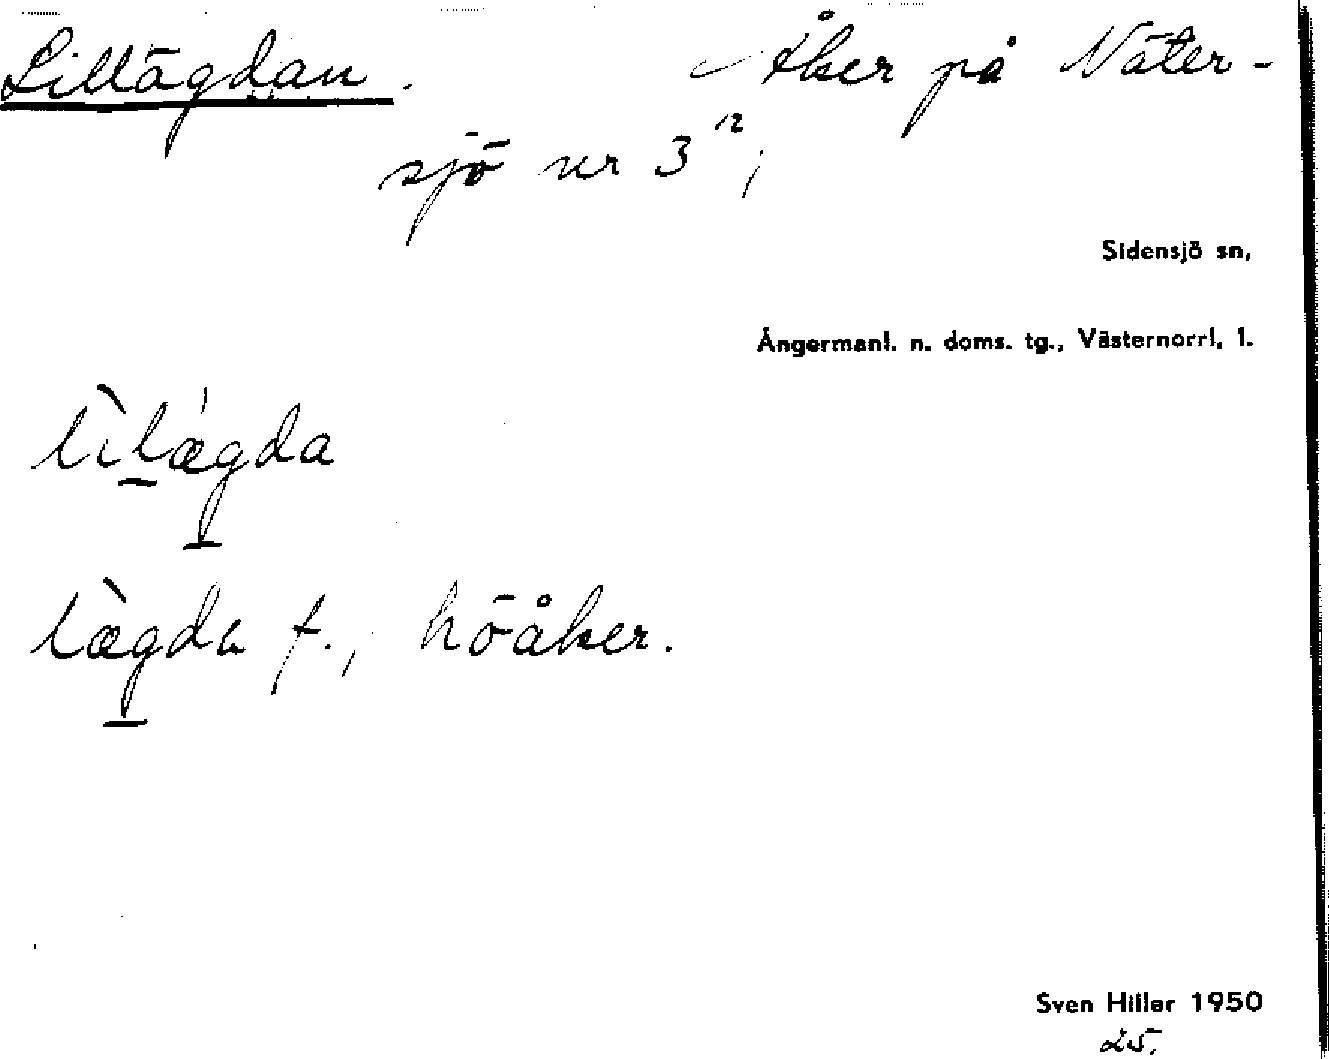 Lillägdan. Åker på Näter-
sjö nr 3¹²,
Sidensjö sn,
Ångermanl. n. doms. tg., Västernorrl. l.
lìlǽgda
læ̀gda f., höåker.
Sven Hiller 1950